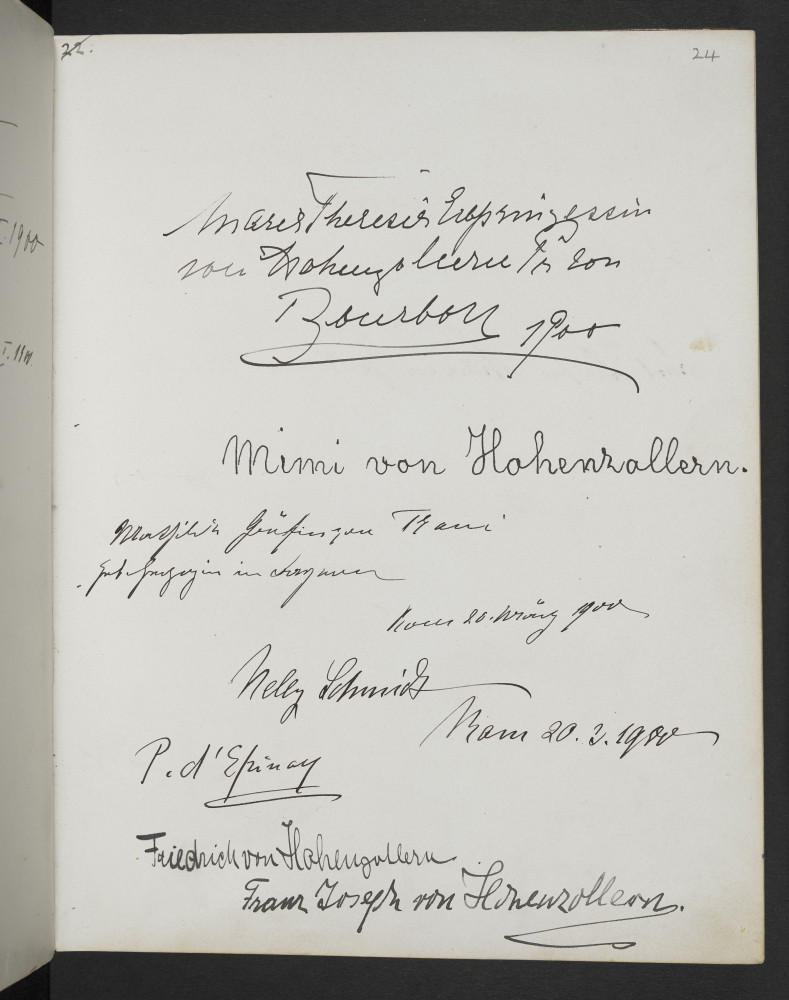 22.
24
Maria Theresia Erbprinzessin
von Hohenzollern Pr von
Bourbon 1900
Mimi von Hohenzollern.
Mathilde Gräfin von Trani
geb. Herzogin in Bayern
Rom 20. März 1900
Nelly Schmidt
Rom 20. 3. 1900
P. d'Epinay
Friedrich von Hohenzollern
Franz Joseph von Hohenzollern.
1900